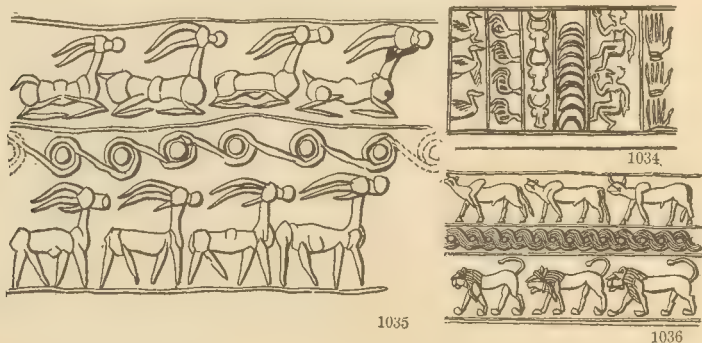 1034.
1035
1036